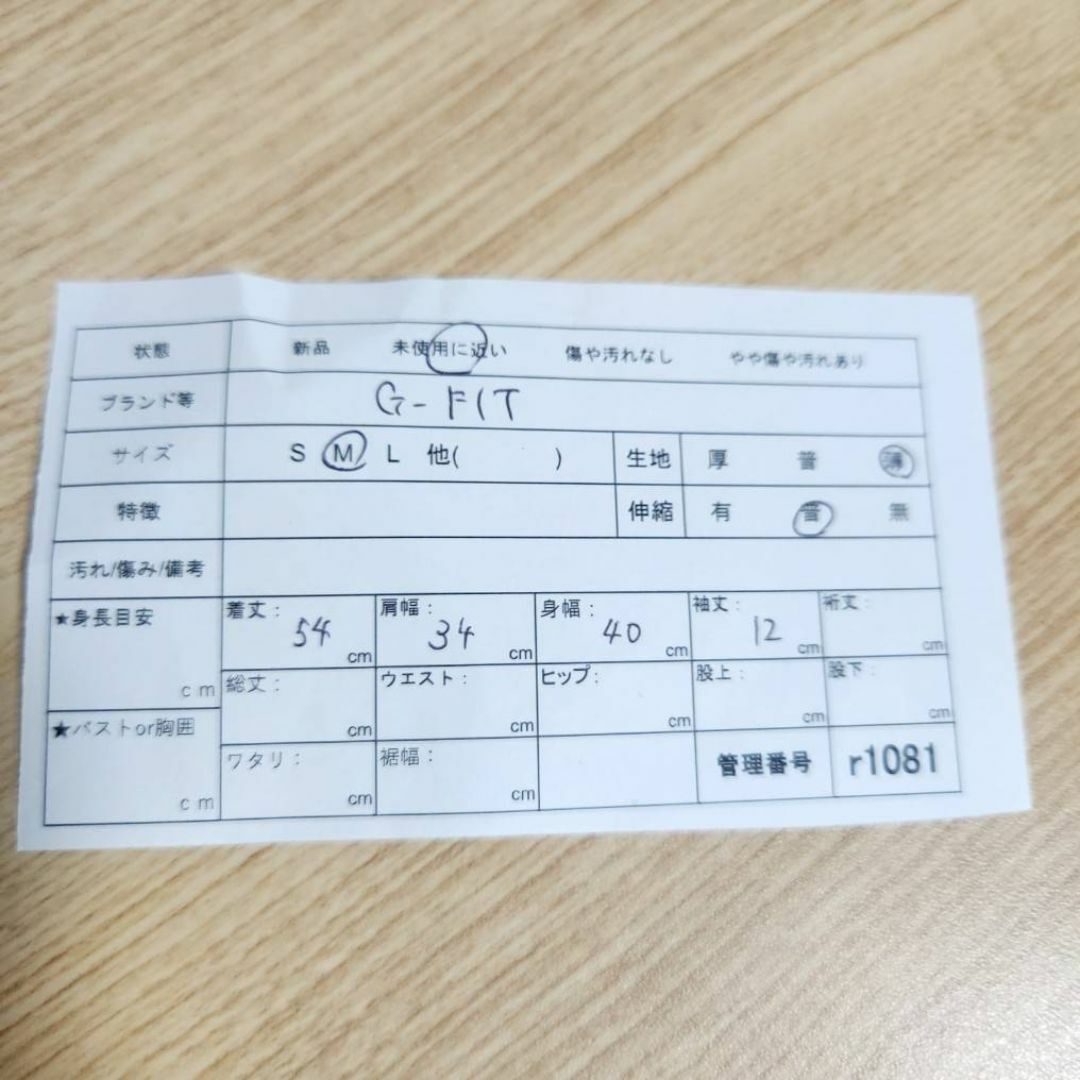 状態 新品 未使用に近い 傷や汚れなし やや傷や汚れあり
ブランド等 G-FIT
サイズ S M L 他( ) 生地 厚 普 薄
特徴 伸縮 有 普 無
汚れ/傷み/備考
★身長目安 cm
着丈: 54 cm 肩幅: 34 cm 身幅: 40 cm 袖丈: 12 cm 裄丈: cm
総丈: cm ウエスト: cm ヒップ: cm 股上: cm 股下: cm
★バストor胸囲 cm
ワタリ: cm 裾幅: cm 管理番号 r1081